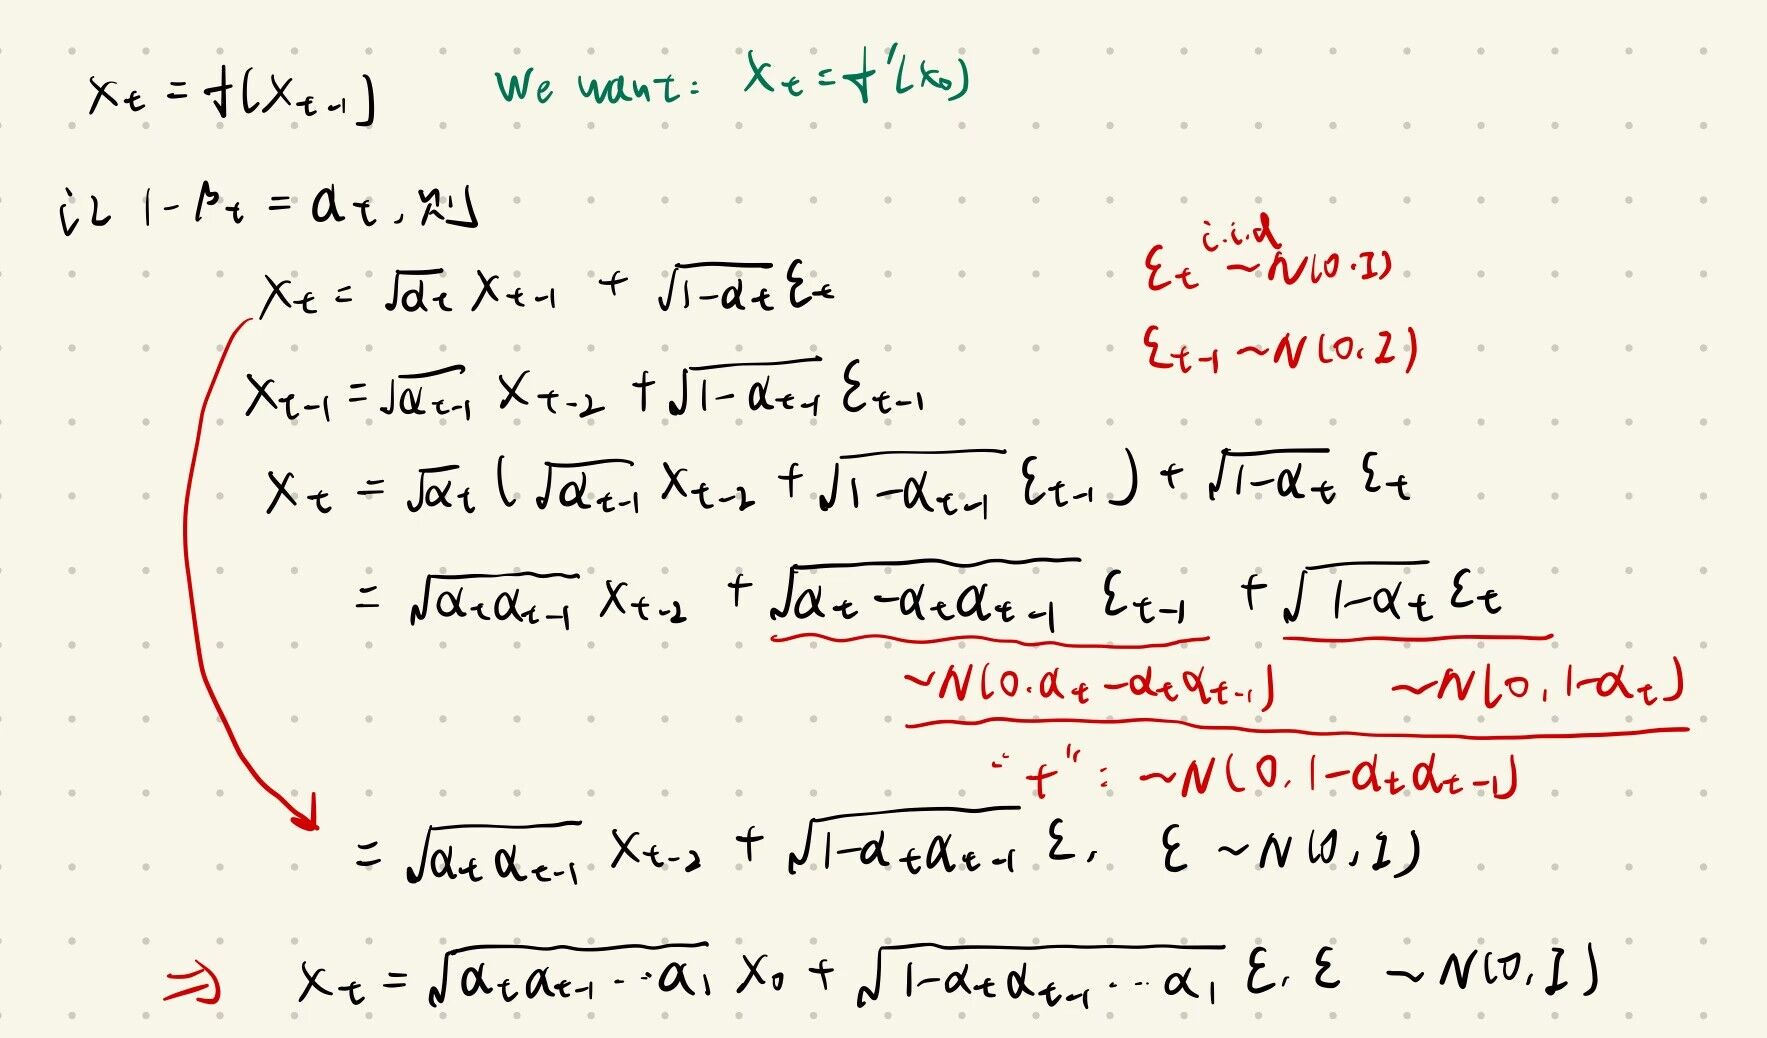 x_t = f(x_{t-1}) We want: x_t = f'(x_0)
记 1-β_t = α_t, 则
ε_t i.i.d ~N(0,I)
x_t = √α_t x_{t-1} + √(1-α_t) ε_t
ε_{t-1} ~N(0,I)
x_{t-1} = √α_{t-1} x_{t-2} + √(1-α_{t-1}) ε_{t-1}
x_t = √α_t (√α_{t-1} x_{t-2} + √(1-α_{t-1}) ε_{t-1}) + √(1-α_t) ε_t
= √(α_tα_{t-1}) x_{t-2} + √(α_t-α_tα_{t-1}) ε_{t-1} + √(1-α_t) ε_t
~N(0,α_t-α_tα_{t-1}) ~N(0,1-α_t)
"+": ~N(0,1-α_tα_{t-1})
= √(α_tα_{t-1}) x_{t-2} + √(1-α_tα_{t-1}) ε, ε ~N(0,I)
⇒ x_t = √(α_tα_{t-1}···α_1) x_0 + √(1-α_tα_{t-1}···α_1) ε, ε ~N(0,I)